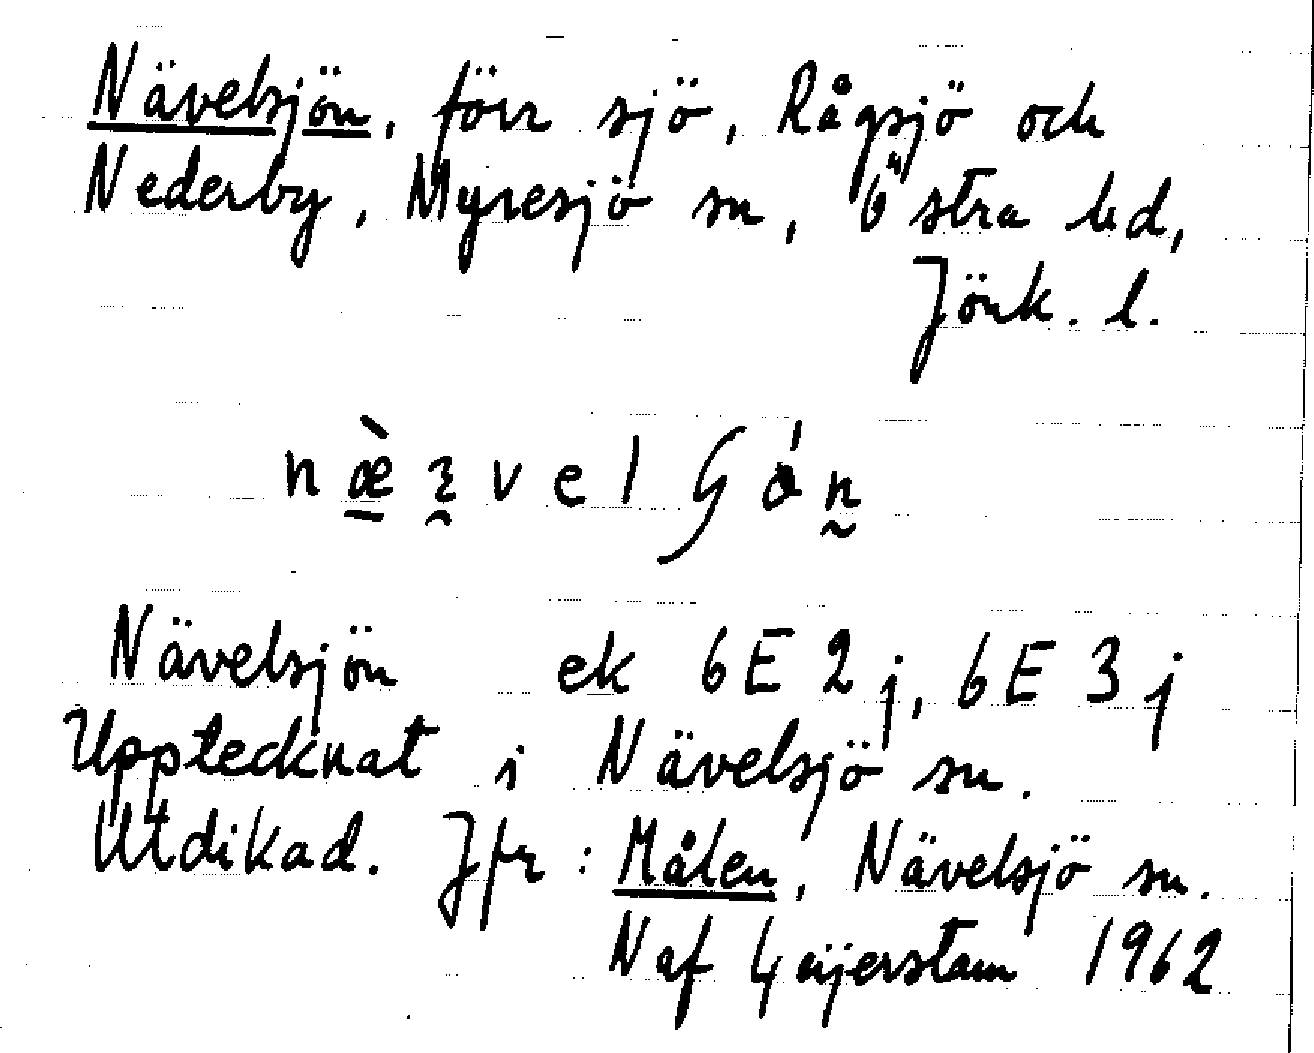 Nävelsjön, förr sjö, Rågsjö och
Nederby, Myresjö sn, Östra hd,
Jönk. l.
Nävelsjön ek 6E2j, 6E3j
Upptecknat i Nävelsjö sn.
Utdikad. Jfr: Målen, Nävelsjö sn.
N af Geijerstam 1962